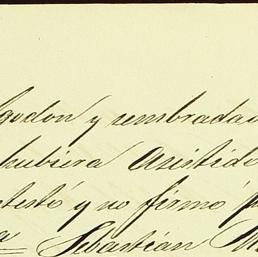 godon y sembrada
hubiera asistido
testó y no firmó p
a Sebastián